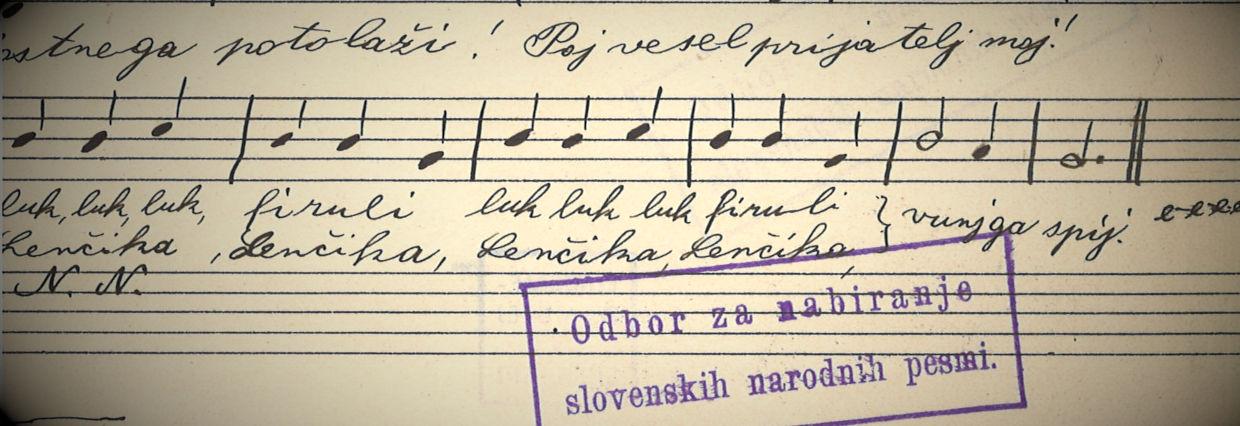 potolaži! Poj vesel prijatelj moj!
luk, luk, luk, firuli luk luk luk firuli } vunjga spij.
Lenčika, Lenčika, Lenčika, Lenčika,
N. N.
Odbor za nabiranje
slovenskih narodnih pesmi.